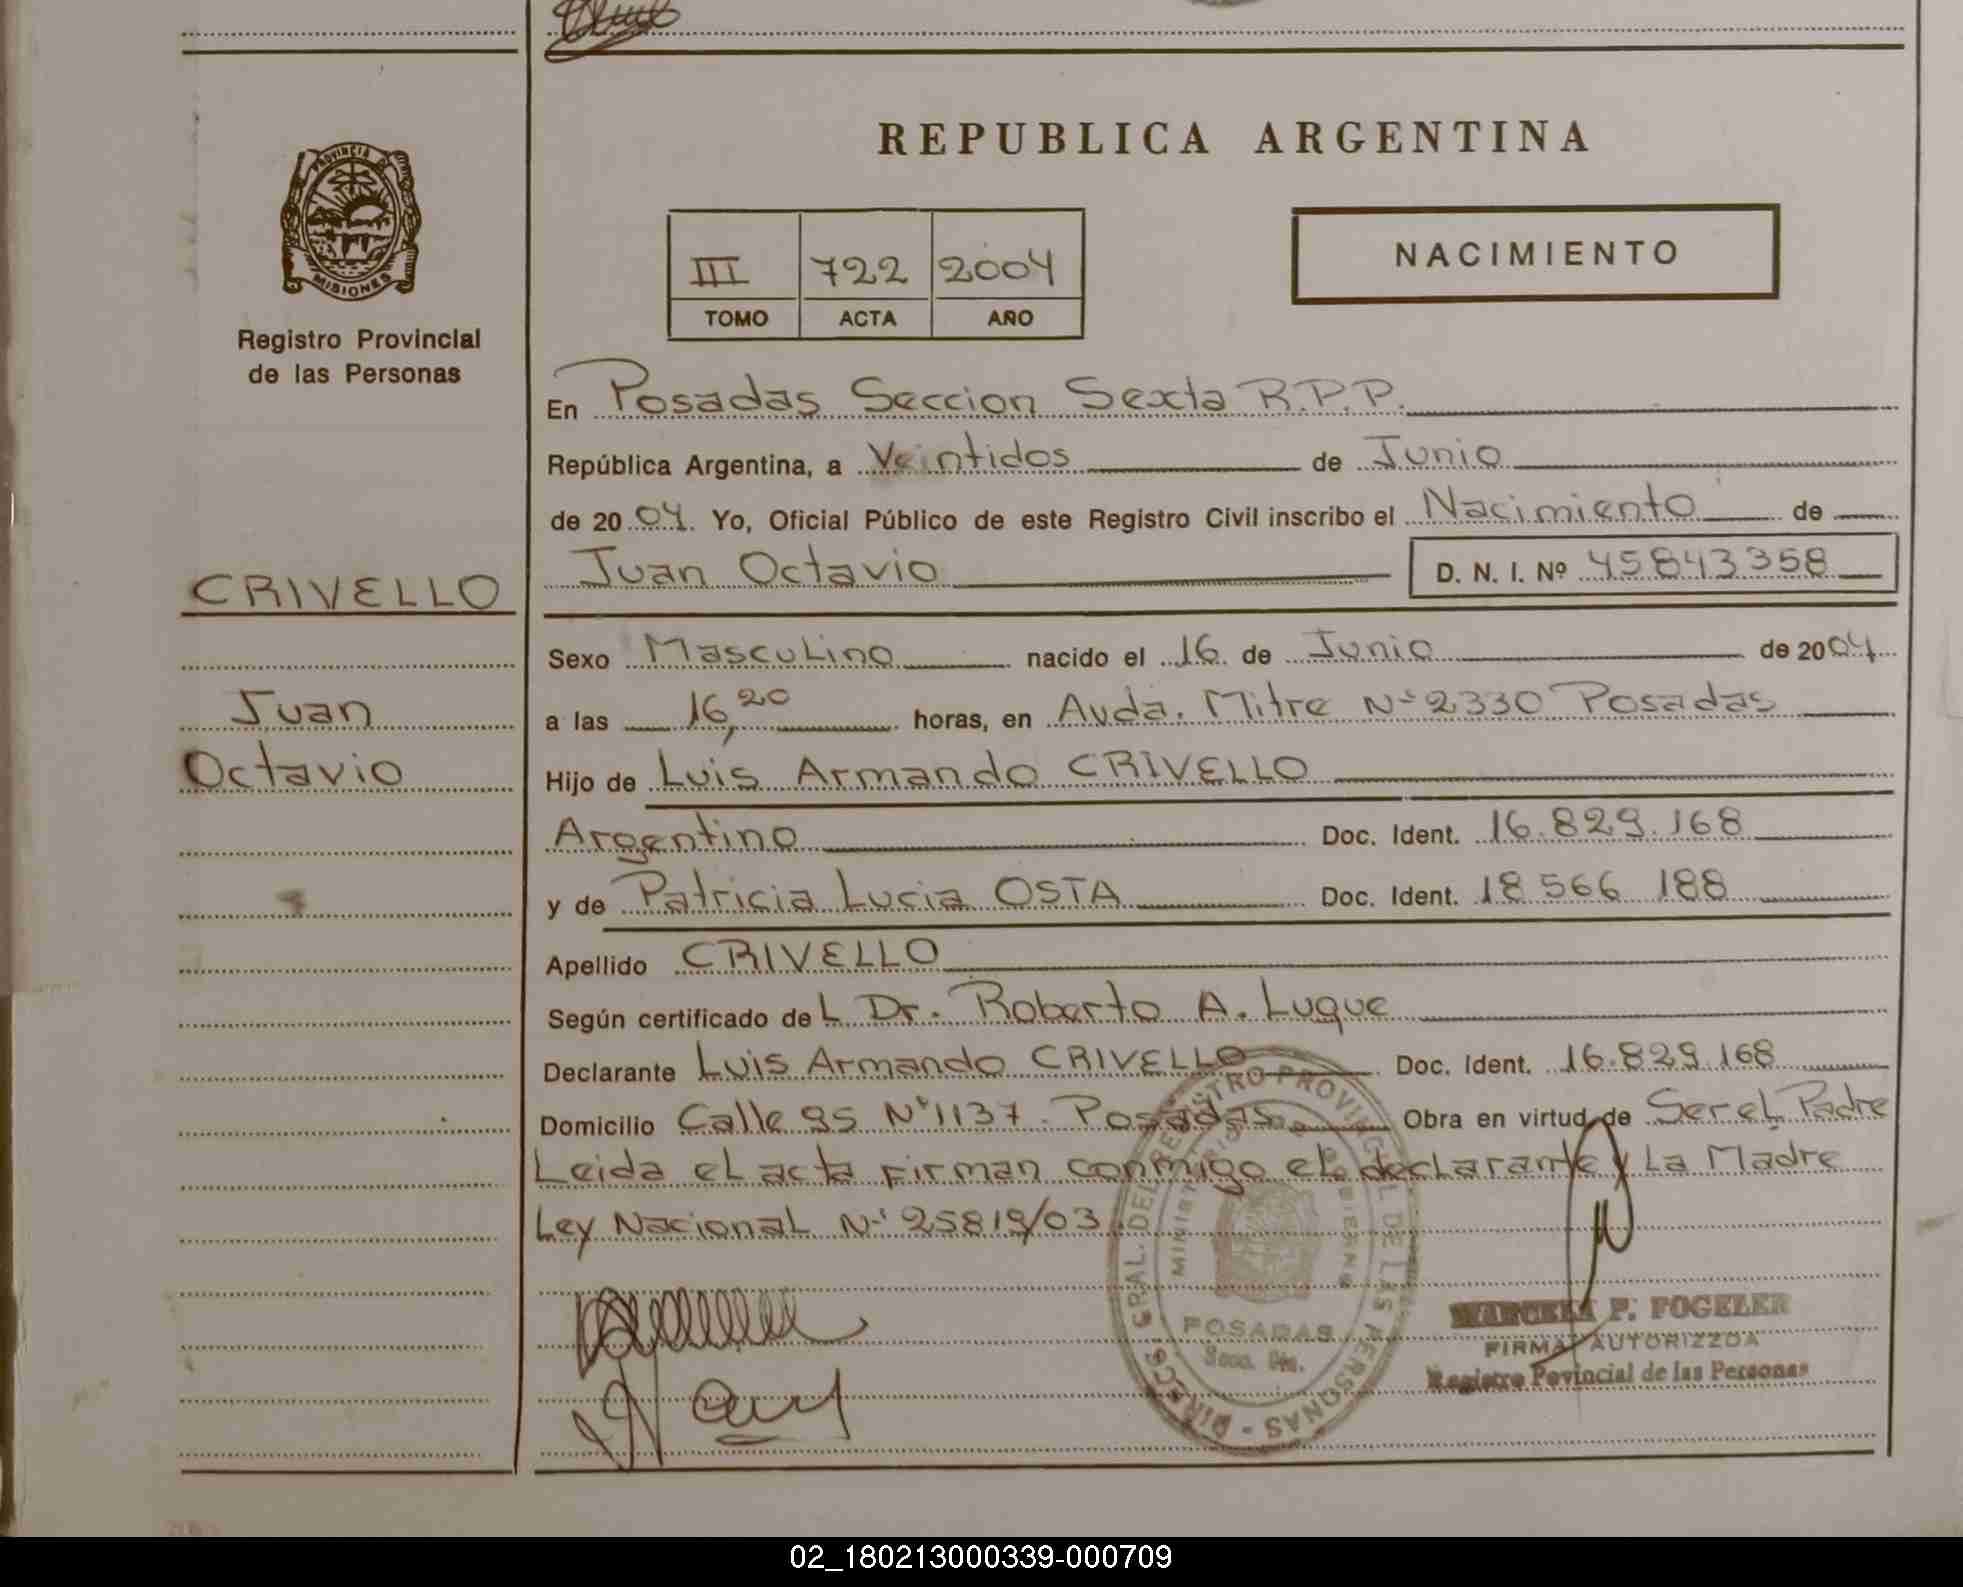 REPUBLICA ARGENTINA
PROVINCIA DE MISIONES
Registro Provincial
de las Personas
III 722 2004
TOMO ACTA AÑO
NACIMIENTO
En Posadas Seccion Sexta R.P.P.
República Argentina, a Veintidos de Junio
de 2004. Yo, Oficial Público de este Registro Civil inscribo el Nacimiento de
Juan Octavio D. N. I. Nº 45843358
CRIVELLO
Juan
Octavio
Sexo Masculino nacido el 16 de Junio de 2004
a las 16,20 horas, en Avda. Mitre Nº 2330 Posadas
Hijo de Luis Armando CRIVELLO
Argentino Doc. Ident. 16.829.168
y de Patricia Lucia OSTA Doc. Ident. 18566 188
Apellido CRIVELLO
Según certificado del Dr. Roberto A. Luque
Declarante Luis Armando CRIVELLO Doc. Ident. 16.829.168
Domicilio Calle 95 Nº 1137 - Posadas Obra en virtud de Ser el Padre
Leida el acta firman conmigo el declarante y La Madre
Ley Nacional Nº 25819/03.
DIRECC. GRAL. DEL REGISTRO PROVINCIAL DE LAS PERSONAS
POSADAS
P. FOGELER
FIRMA AUTORIZZDA
Registro Povincial de las Personas
02_180213000339-000709